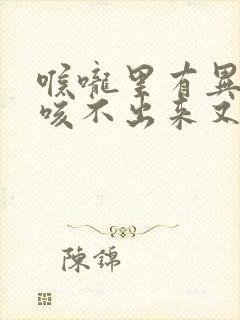 喉嚨里有異
咳不出来又
陳錦